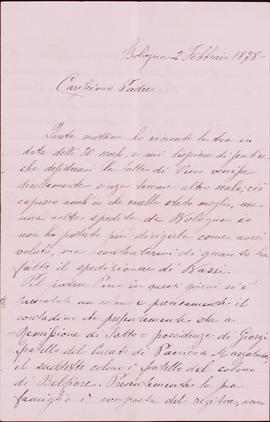 Bologna 2 Febbraio 1898-
Carissimo Padre
Questa mattina ho ricevuto la tua in
data delli 30 scorso, e mi di sentire
che desideravi la botte di Vino venisse
direttamente senza fare altro scalo, ciò
capisco anch'io che sarebbe stato meglio, ma
una volta spedita da Bologna io
non ho potuto più dirigerla come avrei
voluto, ma contentarmi di quanto ha
fatto il spedizioniere di Bassi.
Pel podere Pino in questi giorni si è
presentato un colono e precisamente il
contadino che presentemente sta a
di Sotto = possidenza di Giorgi
fratello del Curato di Panico a Marzabotto,
il suddetto colono è fratello del colono
di Belfiore. Presentemente la sua
famiglia è composta del reggitore, uomo